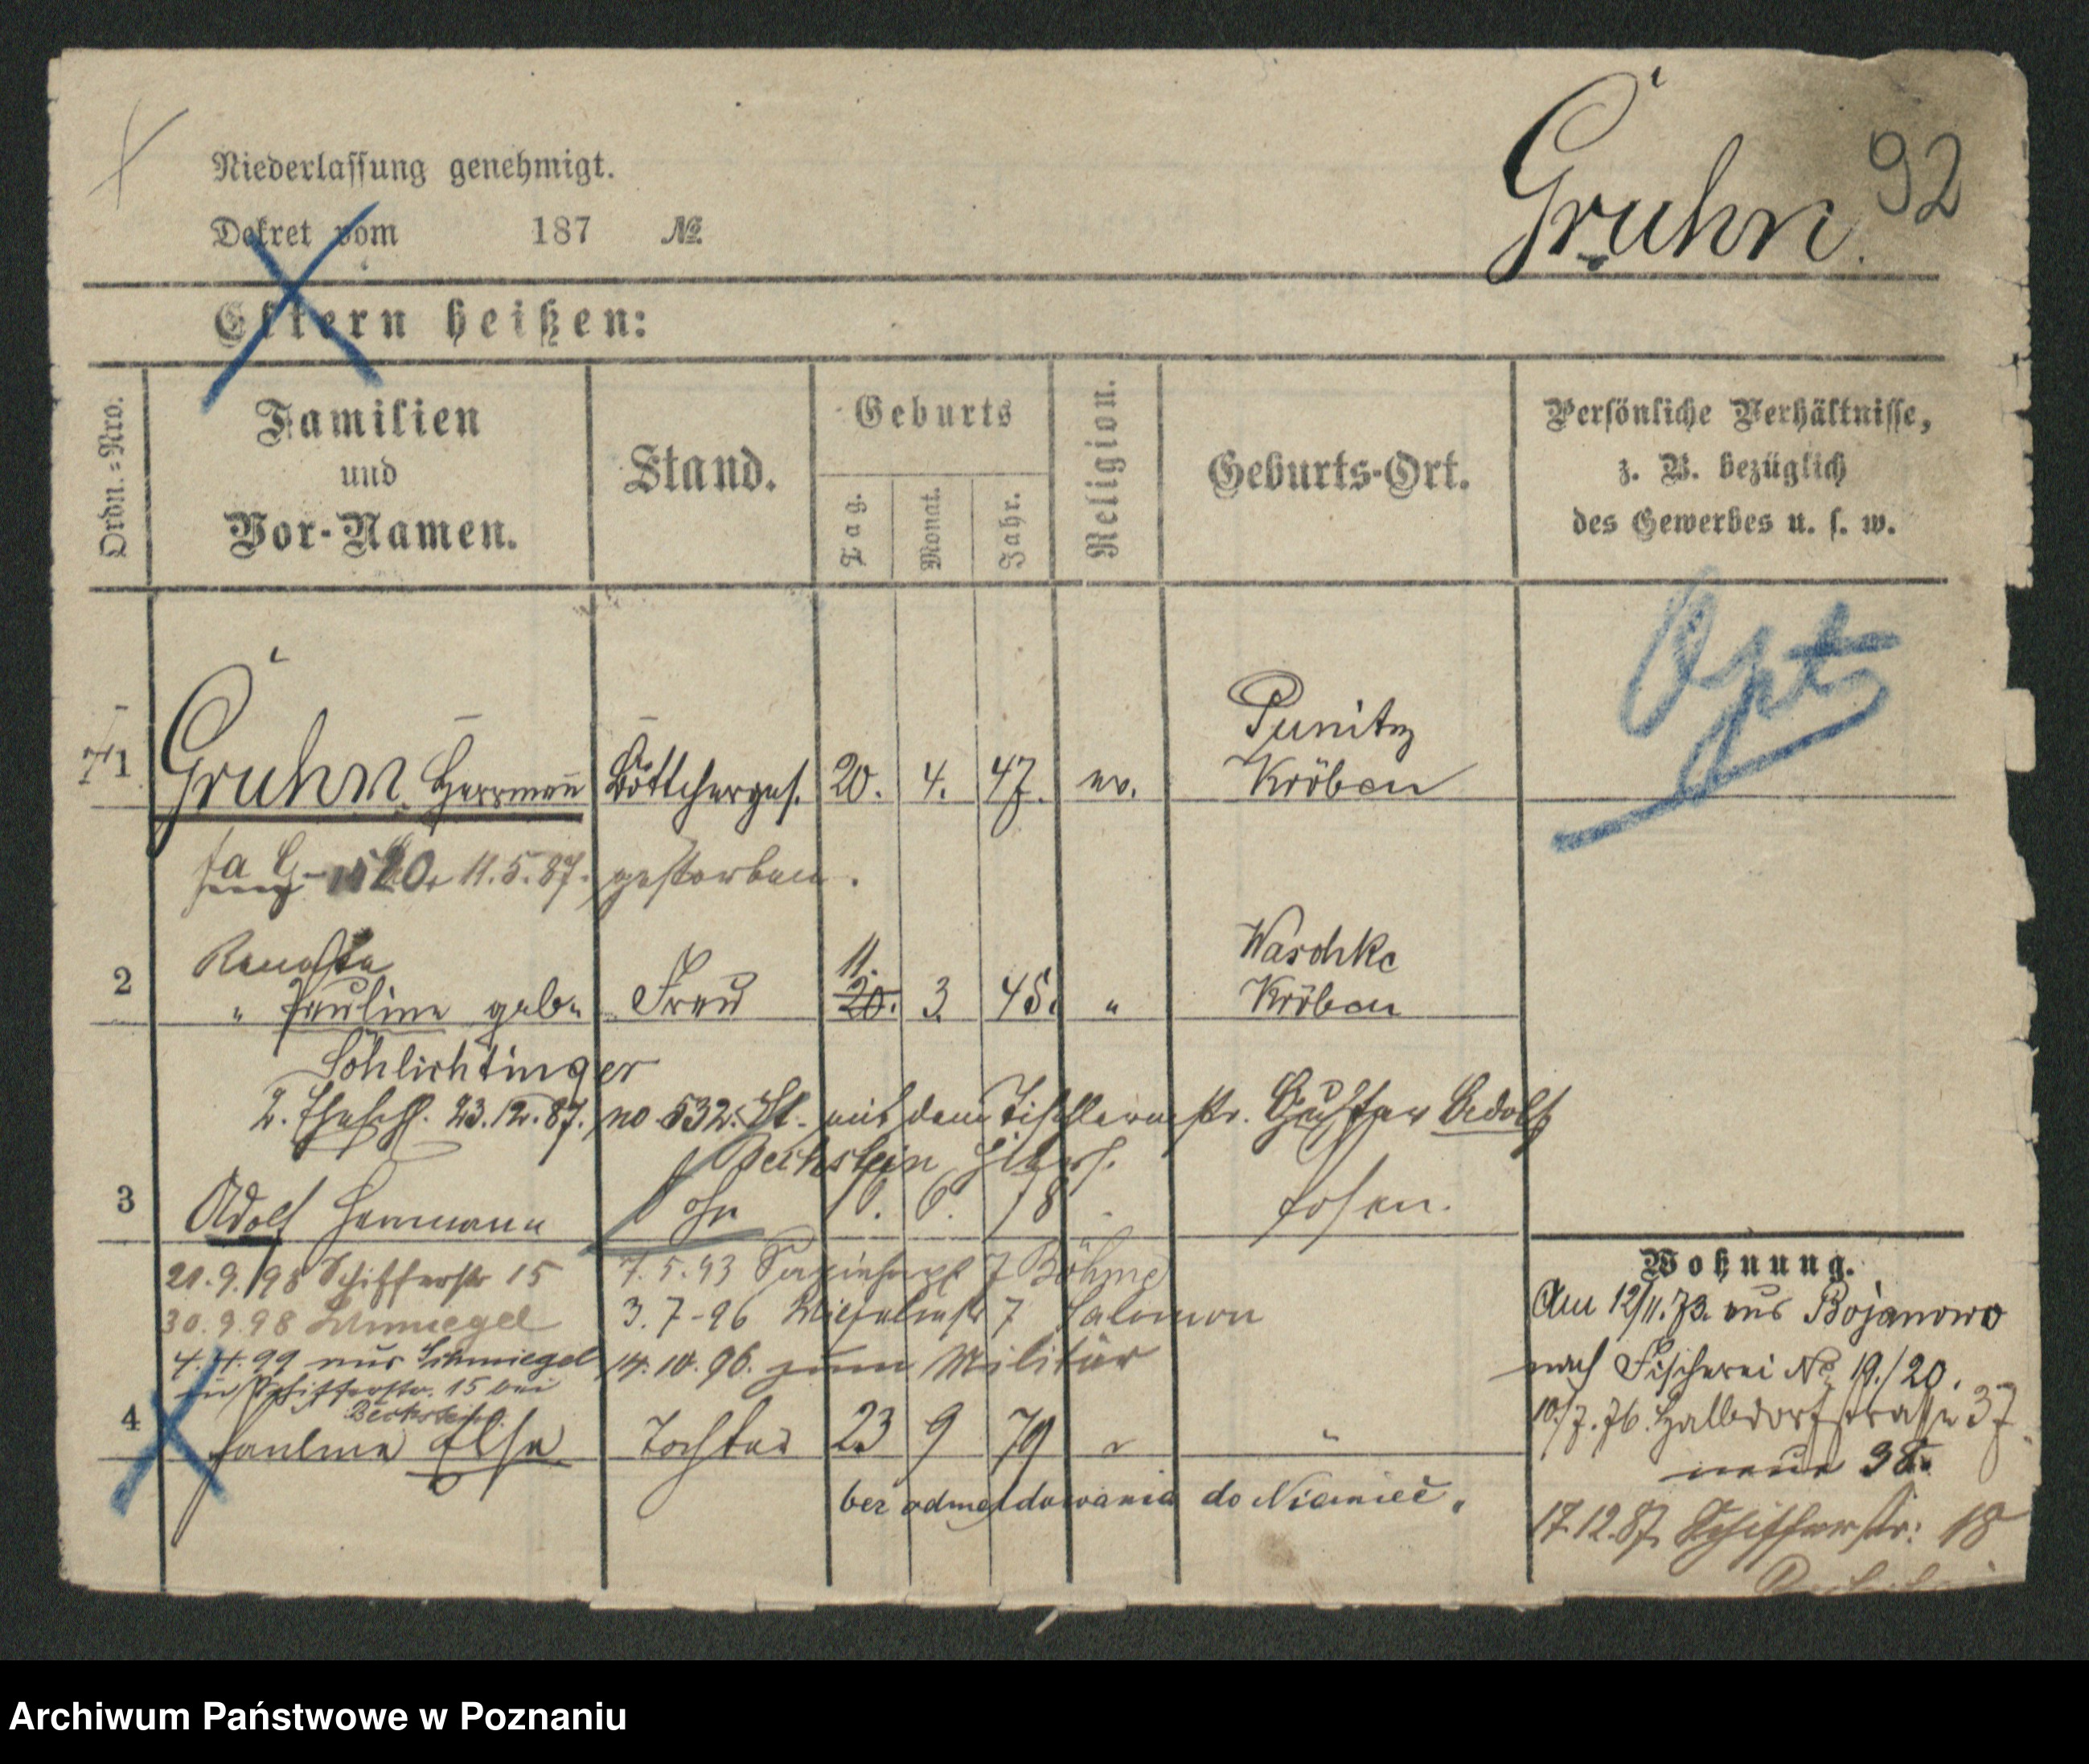 Gruhn. 92
Niederlassung genehmigt.
Dekret vom 187 №
Eltern heißen:
Ordn.-Nro.
Familien
und
Vor-Namen.
Stand.
Geburts
Tag.
Monat.
Jahr.
Religion.
Geburts-Ort.
Persönliche Verhältnisse,
z. B. bezüglich
des Gewerbes u. s. w.
Opt
Punitz
1 Gruhn Herrmann Böttcherges. 20. 4. 47. ev. Kröben
11.5.87. gestorben.
Waschke
11.
2 " Pauline geb. Frau 20. 3. 45. " Kröben
Schlichtinger
2. 23.12.87. no 532. St. mit dem Tischlermstr. Gustav Adolf
Bechstein
3 Adolf Hermann Sohn 1. 6. 78 Posen.
21.9.98 Schifferstr 15 7.5.93 7 Böhme
30.9.98 Schmiegel 3.7-96 7 Salomon
99 aus Schmiegel 14.10.96. zum Militär
Schifferstr. 15 bei
Bechstein
4 Pauline Else Tochter 23 9 79 "
bez odmeldowania do Niemiec.
Wohnung.
Am 12/11.73. aus Bojanowo
nach Fischerei No 19./20.
10./7.76. Halbdorfstraße 37
neue 38.
17.12.87. Schifferstr: 18
Archiwum Państwowe w Poznaniu